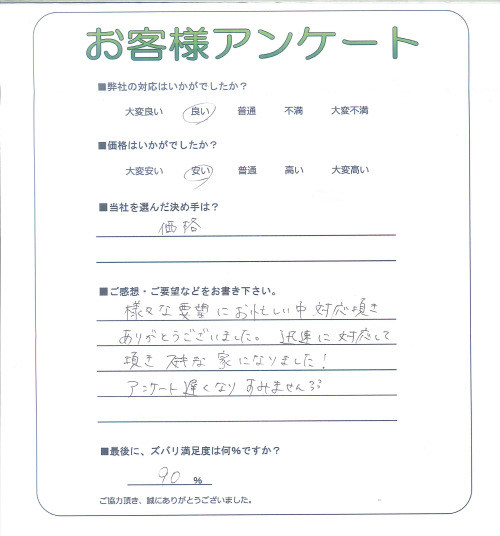 お客様アンケート
■弊社の対応はいかがでしたか？
大変良い 良い 普通 不満 大変不満
■価格はいかがでしたか？
大変安い 安い 普通 高い 大変高い
■当社を選んだ決め手は？
価格
■ご感想・ご要望などをお書き下さい。
様々な要望にお忙しい中対応頂き
ありがとうございました。迅速に対応して
頂きステキな家になりました！
アンケート遅くなりすみません
■最後に、ズバリ満足度は何％ですか？
90 ％
ご協力頂き、誠にありがとうございました。